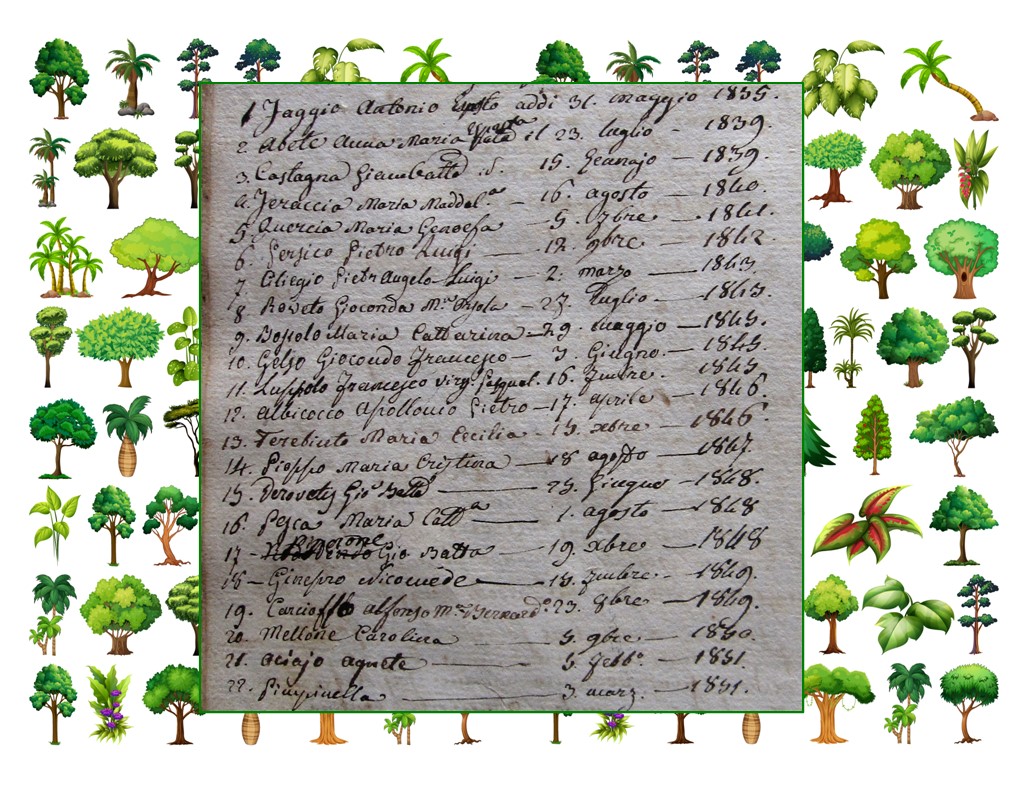 1. Faggio Antonio Esposto addi 31. maggio 1835.
2. Abete Anna Maria Esposta il 23. luglio - 1839.
3. Castagna Giambatta id. 15. Gennajo - 1839.
4. Feraccia Maria Maddal.a - 16. agosto - 1840.
5. Quercia Maria Genoesa - 5. 7bre - 1841.
6. Persico Pietro Luigi - 12. 9bre. - 1842
7. Ciliegio Pietr Angelo Luigi - 2. marzo - 1843.
8. Roveto Gioconda M.a Orsola - 27. luglio. - 1843.
9. Bossolo Maria Cattarina - 29. maggio - 1845.
10. Gelso Giocondo Francesco - 3. Giugno. - 1845
11. Francesco 16. - 1845.
12. Albicocco Apollonio Pietro - 17. aprile - 1846.
13. Terebinto Maria Cecilia - 15. xbre - 1846.
14. Pioppo Maria Cristina - 18 agosto - 1847.
15. Gio. Batta - 25. Giugno - 1848.
16. Pesca Maria Catt.a - 1. agosto - 1848
17 - Gio Batta - 19. xbre - 1848
18 - Ginepro Nicomede - 15. - 1849.
19. Carcioffo alfonso M.a Bernard.o 23. 8bre - 1849.
20. Mellone Carolina - 5. 9bre. - 1850.
21. aciajo agnete - 5. Febb.o - 1851.
22. Pimpinella - 3. marz. - 1851.